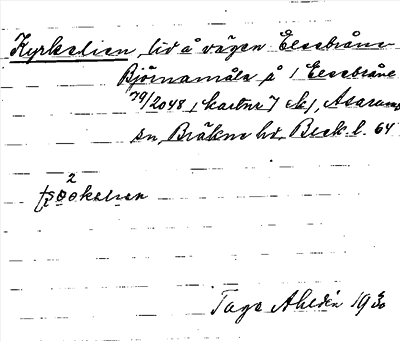 Kyrkelien, lid å vägen Elsebråne
Björnamåla på 1 Elsebråne
79/2048, kartnr 7 ek/, Asarums
sn, Bräkne hd. Blek. l. 64
Tage Ahldén 1930